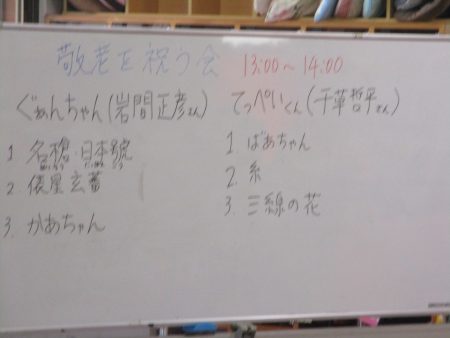 敬老を祝う会 13:00~14:00
ぐぁんちゃん(岩間正彦さん)
1 名槍・日本號
2. 俵星玄蕃
3. かあちゃん
てっぺいくん(千葉哲平さん)
1 ばあちゃん
2. 糸
3. 三線の花